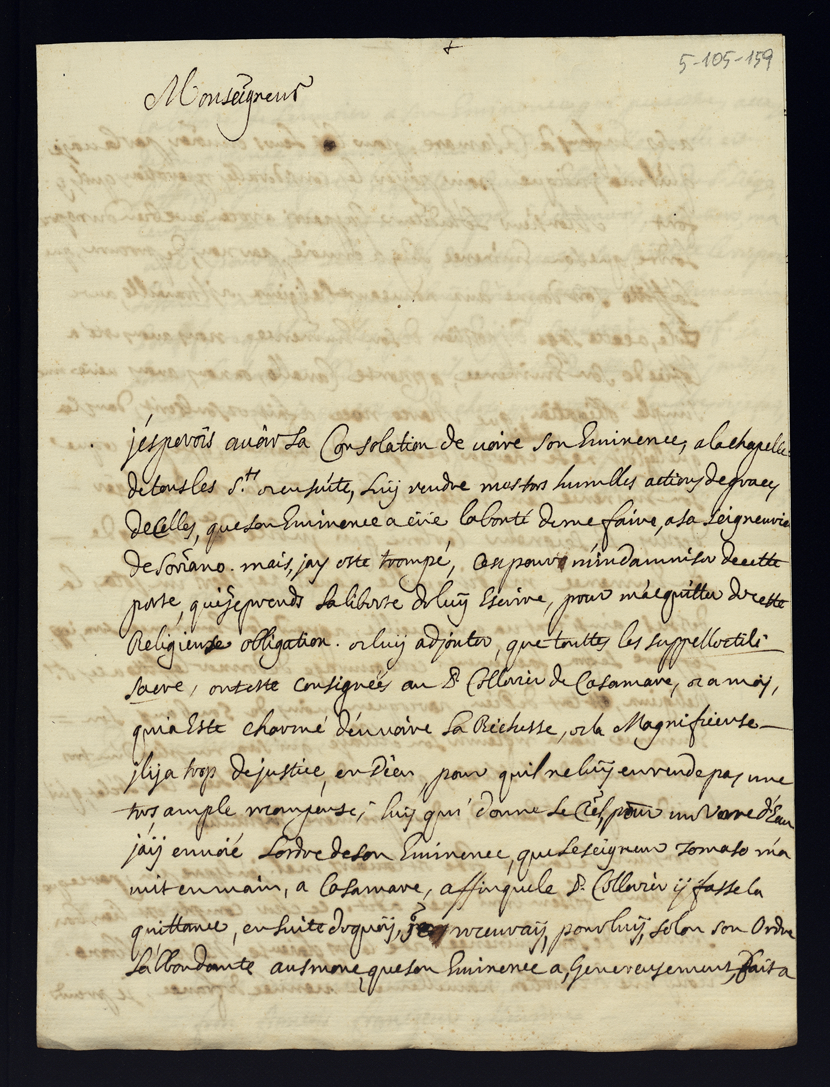 5-105-159
Monseigneur
j'ésperois avoir La Consolation de voire son Eminence, a la chapelle
de tous les S.ts et ensuite, Luy rendre mes tres humbles actions de graces
de Celles, que son Eminence a eüe la bonté de me faire, a sa Seigneurie
de Soriano. mais, jay este trompé, c'est pour m'indamniser de cette
perte, que je prends La liberte de luy Escrire, pour m'acquitter de cette
Religieuse obligation. et luy adjouter, que touttes les suppellectili
sacre, ont este consignées au P. Cellerier de Casamare, et a moy,
qui a Este charmé d'en voire La Richesse, et la Magnificense
jl y a trop de justice, en Dieu, pour qu'il ne luy en rende pas une
tres ample recompense, luy qui donne Le Ciel pour un Verre d'Eau
j'aÿ envoié L'ordre de son Eminence, que Le seigneur Tomaso m'a
mit en main, a Casamare, affin que le P. Cellerier ÿ fasse la
quittance, en suite de quoÿ, je recevraÿ, pour luÿ, selon son Ordre
L'abbondante ausmone, que son Eminence a, Genereusement, fait a